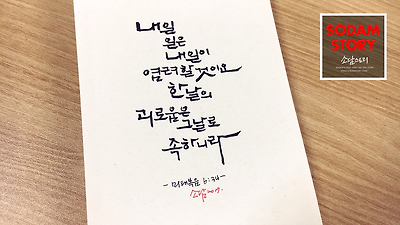 내일
일은
내일이
염려할것이요
한날의
괴로움은
그날로
족하니라
-마태복음 6:34-
SODAM
STORY
소담이야기